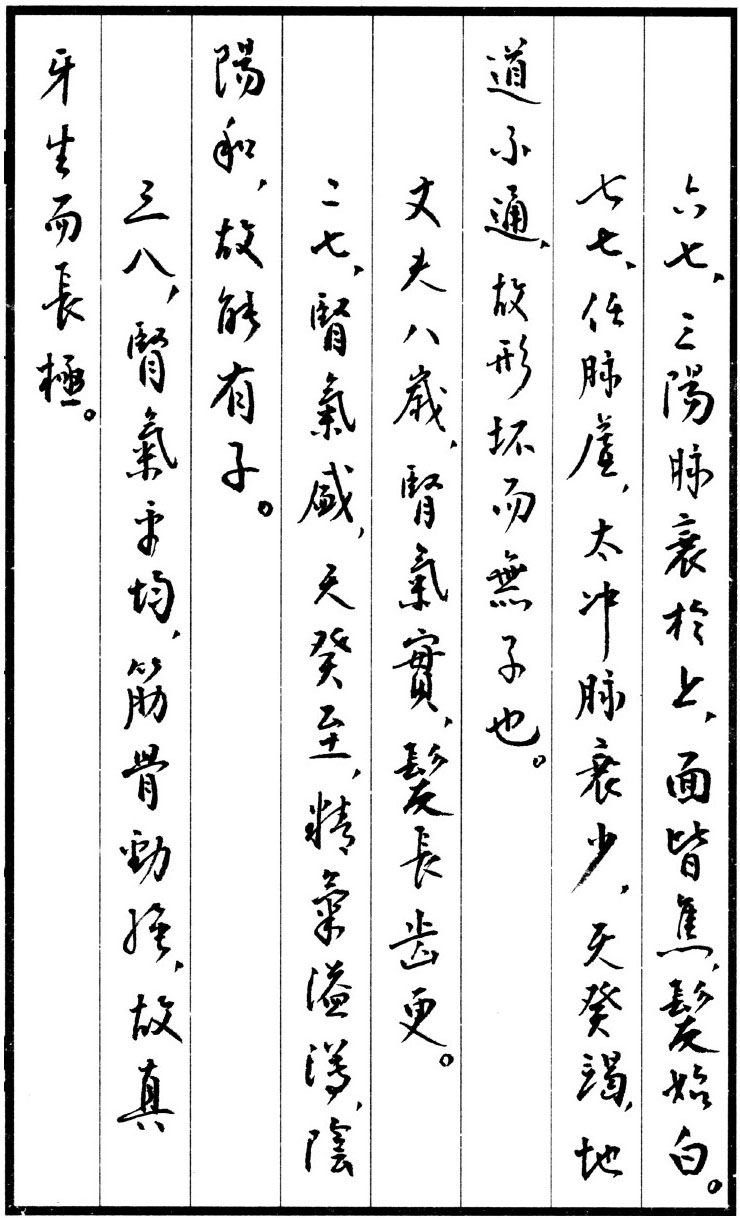 六七，三陽脉衰於上，面皆焦，髮始白。
七七，任脉虛，太冲脉衰少，天癸竭，地
道不通，故形坏而無子也。
丈夫八歲，腎氣實，髮長齒更。
二七，腎氣盛，天癸至，精氣溢瀉，陰
陽和，故能有子。
三八，腎氣平均，筋骨勁强，故真
牙生而長極。